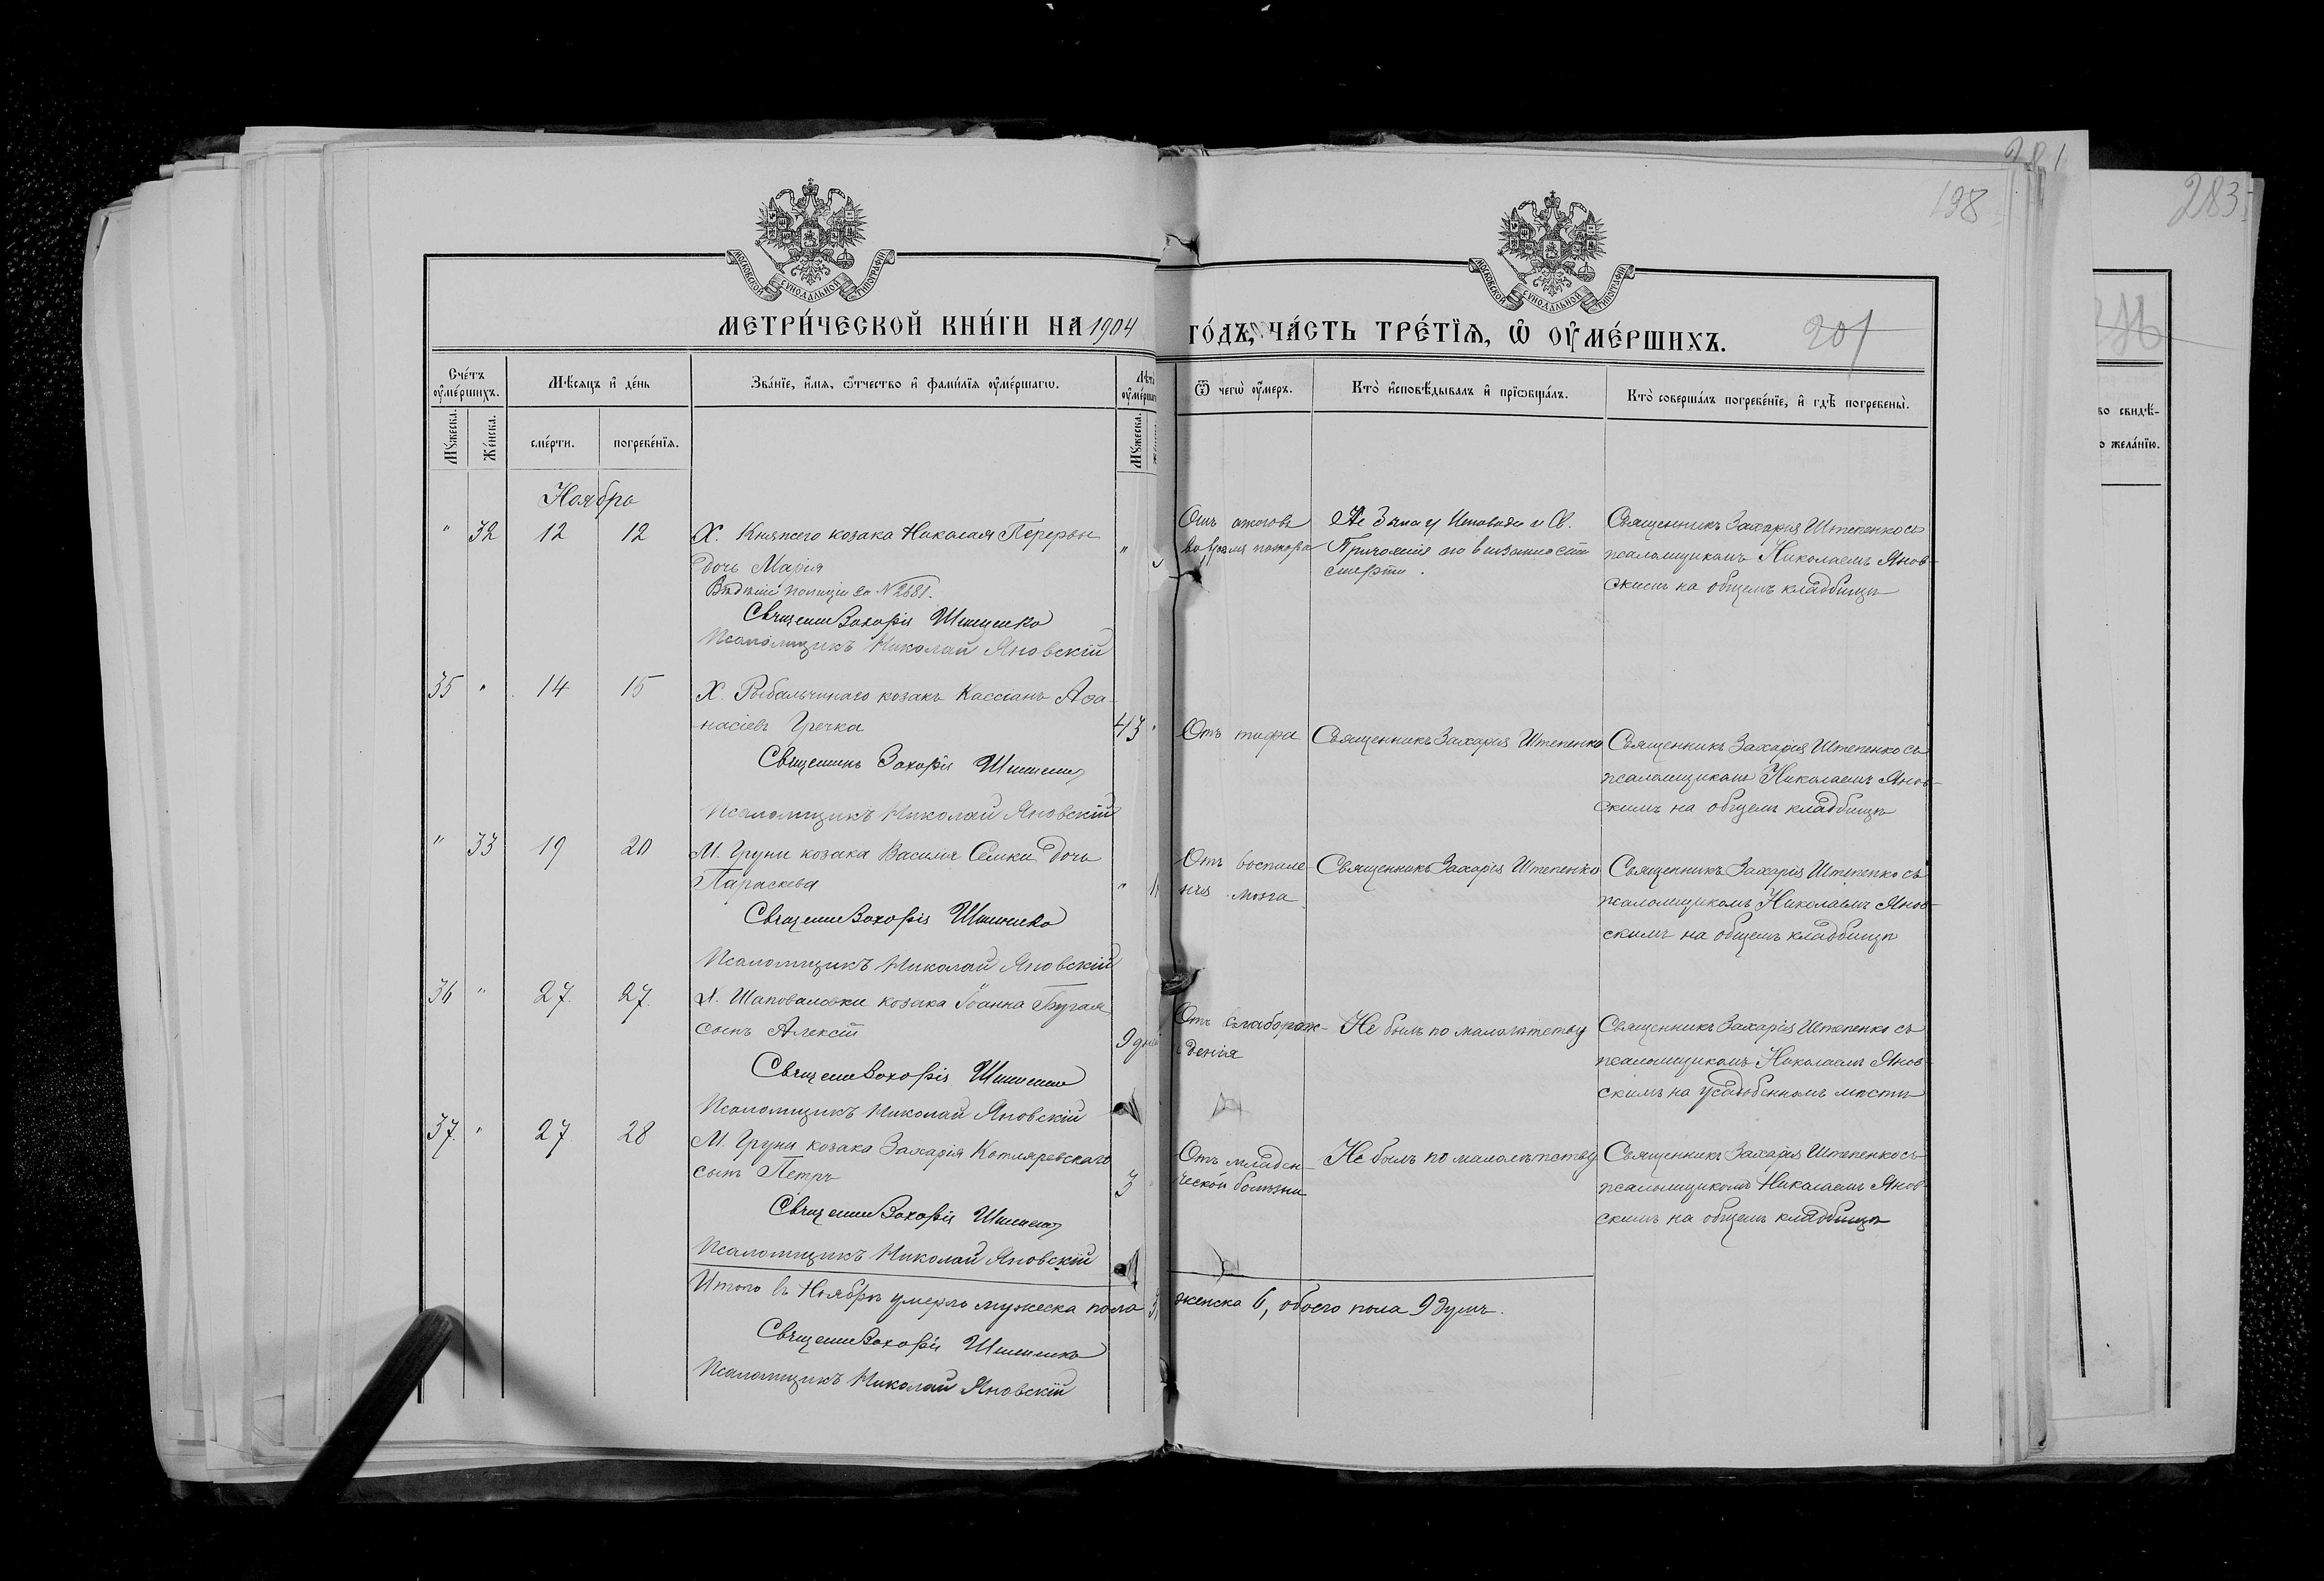 281
198
283
МОСКОВСКОЙ СУНОДАЛЬНОЙ ТИПОГРАФІИ
МОСКОВСКОЙ СУНОДАЛЬНОЙ ТИПОГРАФІИ
МЕТРИ́ЧЕСКОЙ КНИ́ГИ НА 1904 ГО́ДЪ, ЧА́СТЬ ТРЕ́ТЇѦ, Ѡ҆ ОУ҆МЕ́РШИХЪ.
201
Сче́тъ оу҆ме́ршихъ.
Мѣ́сяцъ и҆ де́нь
Зва́нїе, и҆́мя, ѻ҆́тчество и҆ фами́лїя оу҆ме́ршагѡ.
Лѣт
оу҆ме́рша
Ѿ чегѡ̀ оу҆́меръ.
Кто̀ и҆сповѣ́дывалъ и҆ прїѡбща́лъ.
Кто̀ соверша́лъ погребе́нїе, и҆ гдѣ̀ погребены̀.
во свидѣ́-
о жела́нїю.
Му́жеска.
Же́нска.
сме́рти.
погребе́нїя.
Му́жеска.
Ноябрь
" 32 12 12 Х. Княжего козака Николая
дочь Марія
Вѣдѣніе полиціи за № 2681.
Священ Захарія Штепенко
Псаломщикъ Николай Яновскій
"
Отъ ожоговъ
во время пожара
Не былъ у Исповѣди и Св.
Причастія по внезапности
смерти.
Священникъ Захарія Штепенко съ
псаломщикомъ Николаемъ Янов-
скимъ на общемъ кладбищѣ
35 " 14 15 Х. Рыбальчинаго козакъ Кассіанъ Аѳа-
насіевъ Гречка
Священникъ Захарія Штепенко
Псаломщикъ Николай Яновскій
43 "
Отъ тифа
Священникъ Захарія Штепенко
Священникъ Захарія Штепенко съ
псаломщикомъ Николаемъ Янов-
скимъ на общемъ кладбищѣ
" 33 19 20 М. Груни козака Василія Семки дочь
Параскева
Священ Захарія Штепенко
Псаломщикъ Николай Яновскій
"
Отъ воспале-
нія мозга
Священникъ Захарія Штепенко
Священникъ Захарія Штепенко съ
псаломщикомъ Николаемъ Янов-
скимъ на общемъ кладбищѣ
36 " 27 27 Х. Шаповаловки козака Іоанна Бугая
сынъ Алексій
Священ Захарія Штепенко
Псаломщикъ Николай Яновскій
9 дней
Отъ слаборож-
денія
Не былъ по малолѣтству
Священникъ Захарія Штепенко съ
псаломщикомъ Николаемъ Янов-
скимъ на усадебномъ мѣстѣ
37 " 27 28 М. Груни козака Захарія Котляревскаго
сынъ Петръ
Священ Захарія Штепенко
Псаломщикъ Николай Яновскій
3
Отъ младен-
ческой болѣзни
Не былъ по малолѣтству
Священникъ Захарія Штепенко съ
псаломщикомъ Николаемъ Янов-
скимъ на общемъ кладбищѣ
Итого въ Ноябрѣ умерло мужеска пола 3, женска 6, обоего пола 9 душъ.
Священ Захарія Штепенко
Псаломщикъ Николай Яновскій